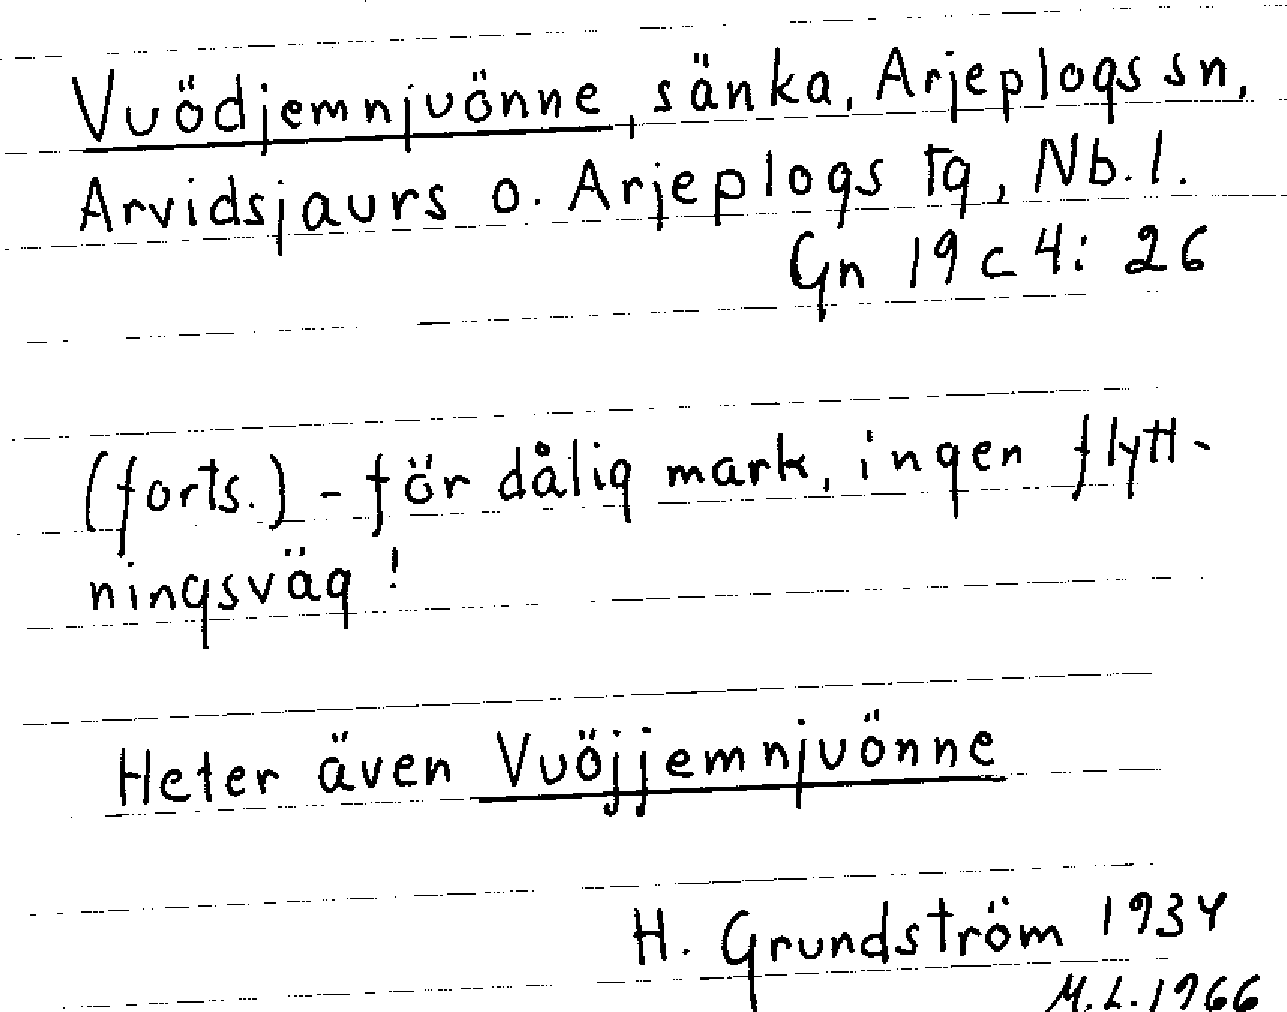 Vuödjemnjuönne, sänka, Arjeplogs sn,
Arvidsjaurs o. Arjeplogs tg, Nb.l.
Gn 19 c 4: 26
(forts.) - för dålig mark, ingen flytt-
ningsväg!
Heter även Vuöjjemnjuönne
H. Grundström 1934
M.L. 1966